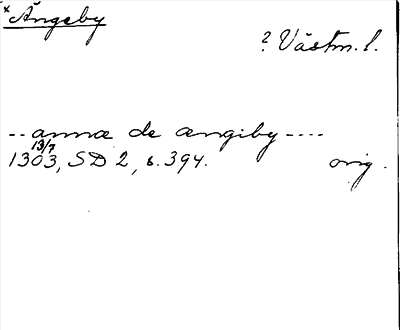 × Ängeby
? Västm. l.
-- annæ de ængiby ----
13/7
1303, SD 2, s. 394. orig.